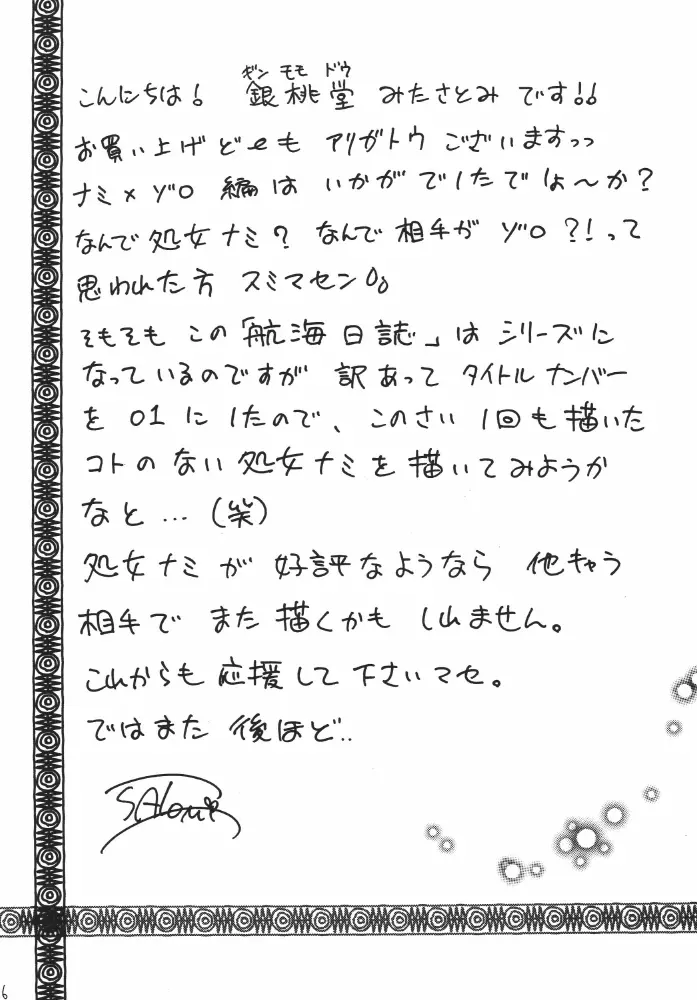 ギン モモ ドウ
こんにちは! 銀桃堂 みたさとみ です!!
お買い上げどーもアリガトウございますっっ
ナミ×ゾロ 編は いかがでしたでしょ〜か?
なんで処女ナミ? なんで相手が ゾロ?!って
思われた方 スミマセン
そもそも この「航海日誌」は シリーズに
なっているのですが 訳あって タイトルナンバー
を 01 にしたので、このさい 1回も描いた
コトのない処女ナミを描いてみようか
なと…(笑)
処女ナミが 好評なようなら 他キャラ
相手で また描くかも しれません。
これからも応援して下さいマセ。
ではまた後ほど..
SAtomi
6